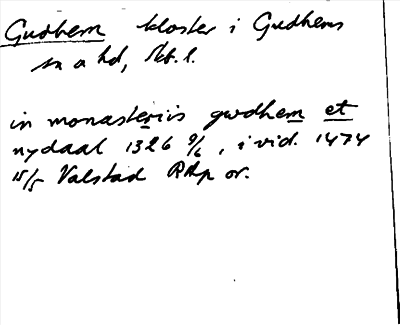 Gudhem kloster i Gudhems
sn o hd, Skb. l.
in monasteriis gwdhem et
nydaal 1326 9/6, i vid. 1474
15/5 Valstad RAp or.